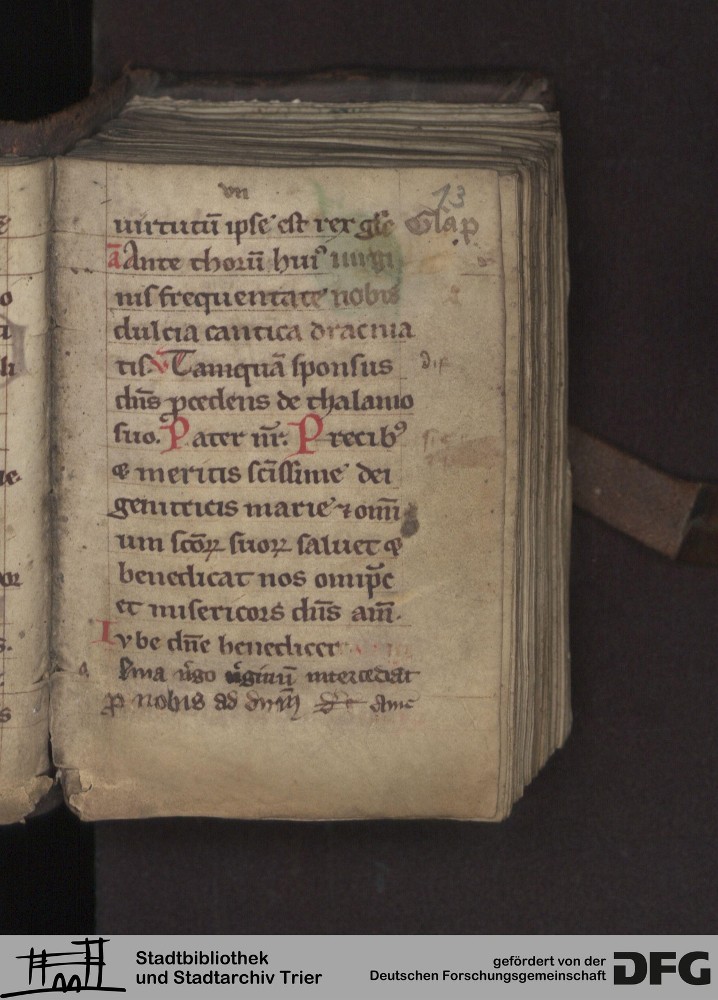 vii
13
uirtutū ipse est rex glē Gla p
a Ante thorū hui᷒ uirgi
nis frequentate nobis
dulcia cantica dracma
tis. V Tamquā sponsus
dn̄s ꝓcedens de thalamo
suo. Pater nr̄. Precib᷒
& meritis sc̄issime dei
genitricis marie ⁊ om̄i
um sc̄oꝝ suoꝝ saluet &
benedicat nos omīpc̄
et misericors dn̄s am̄.
Iube dn̄e benedicer
Alma u͛go u͛ginū intercedat
ꝓ nobis ad dn̄m̄ ame
Stadtbibliothek
und Stadtarchiv Trier
gefördert von der
Deutschen Forschungsgemeinschaft
DFG